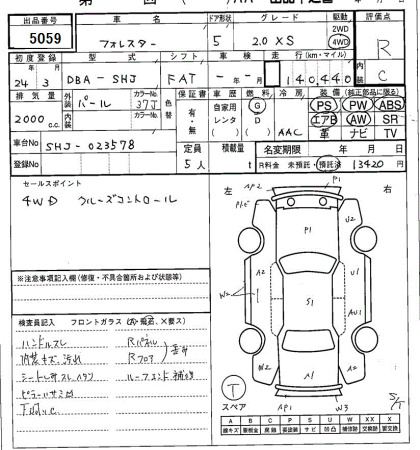 出品番号
5059
車名
フォレスター
ドア形状
5
グレード
2.0 XS
駆動
2WD
4WD
評価点
R
C
初度登録
24年3月
型式
DBA-SHJ
シフト
FAT
車検
- 年 - 月
走行(km・マイル)
140,440
排気量
2000 c.c.
外装
パール
カラーNo.
37J
内装
カラーNo.
色替
保証書
有・無
車歴
自家用
レンタ
燃料
G
D
冷房
AAC
装備(純正部品に限る)
PS PW ABS
エアB AW SR
革 ナビ TV
車台No
SHJ-023578
登録No
定員
5人
積載量
t
名変期限 年 月 日
R料金 未預託・預託済 13420 円
セールスポイント
4WD クルーズコントロール
※注意事項記入欄(修復・不具合箇所および状態等)
検査員記入 フロントガラス(A・飛石、X要ス)
ハンドルスレ
内装キズ汚れ
Rパネル
Rフロア
ルーフエンド補修
左
右
AP2
P1
P1
U2
A2
U1
W2
S1
A2
AU1
W2
A1
S/T
T
スペア
AP1
W3
A B C P S U W X XX
線キズ 要板金 腐蝕 要塗装 サビ 凹凸 補修跡 交換跡 要交換